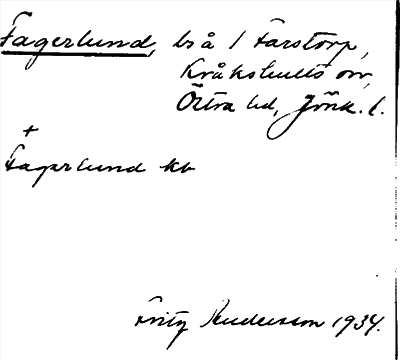 Fagerlund, brå / Farstorp,
Kråkshults sn,
Östra hd, Jönk. l.
+
Fagerlund kb
Fritz Andersson 1934.